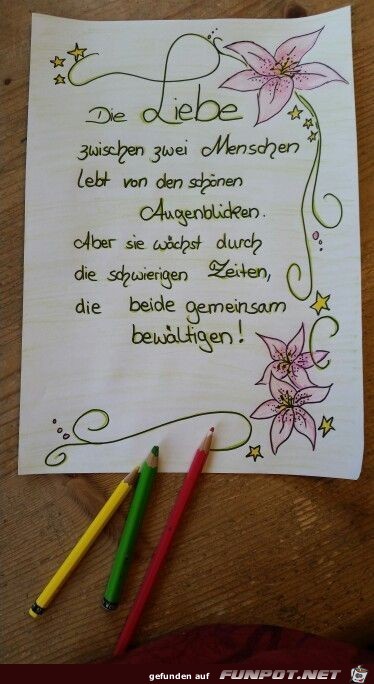 Die Liebe
zwischen zwei Menschen
lebt von den schönen
Augenblicken.
Aber sie wächst durch
die schwierigen Zeiten,
die beide gemeinsam
bewältigen!
gefunden auf FUNPOT.NET